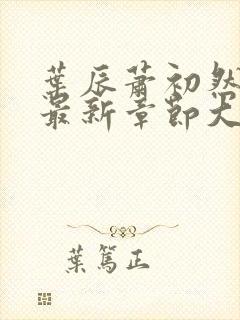 葉辰蕭初然
最新章節大
葉篤正